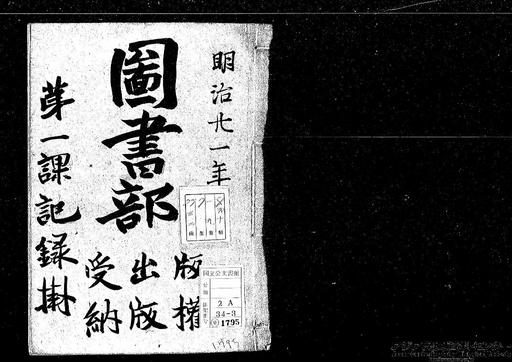 明治廿一年
圖書部
版權
出版
受納
第一課記録掛
国立公文書館
2 A
34-3
1795